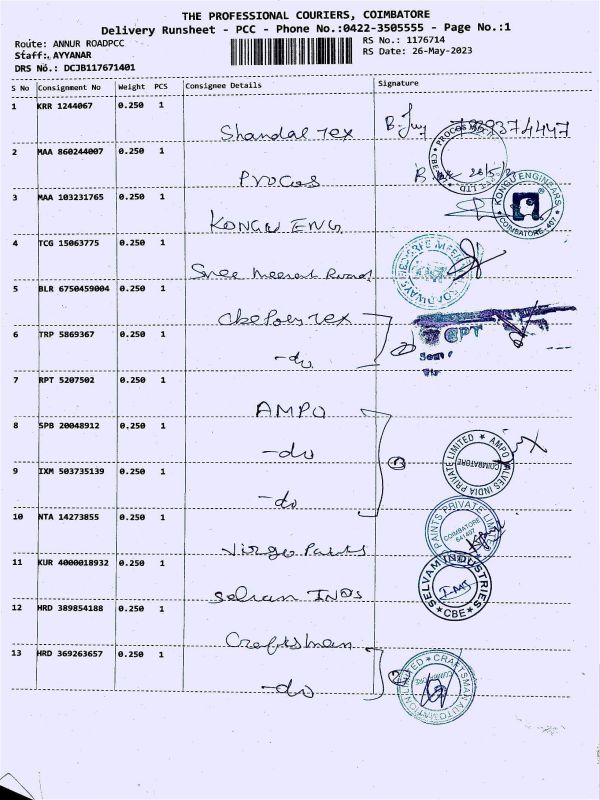 THE PROFESSIONAL COURIERS, COIMBATORE
Delivery Runsheet - PCC - Phone No.:0422-3505555 - Page No.:1
Route: ANNUR ROADPCC
RS No.: 1176714
Staff: AYYANAR
RS Date: 26-May-2023
DRS No.: DCJB117671401
S No Consignment No Weight PCS Consignee Details Signature
1 KRR 1244067 0.250 1
Shandal Tex
2 MAA 860244007 0.250 1
Procos
3 MAA 103231765 0.250 1
KONGU ENG
KONGU ENGINEARS
COIMBATORE
4 TCG 15063775 0.250 1
Sree Meenat
5 BLR 6750459004 0.250 1
Cbe Poly Tex
6 TRP 5869367 0.250 1
-do
7 RPT 5207502 0.250 1
AMPO
8 SPB 20048912 0.250 1
-do
AMPO VALVES INDIA PRIVATE LIMITED
COIMBATORE
9 IXM 503735139 0.250 1
-do
10 NTA 14273855 0.250 1
Virgo Paints
PAINTS PRIVATE LIMITED
COIMBATORE
641407
11 KUR 4000018932 0.250 1
Selvam INDS
SELVAM INDUSTRIES
CBE
12 HRD 389854188 0.250 1
Craftsman
13 HRD 369263657 0.250 1
-do
CRAFTSMAN AUTOMATION LIMITED